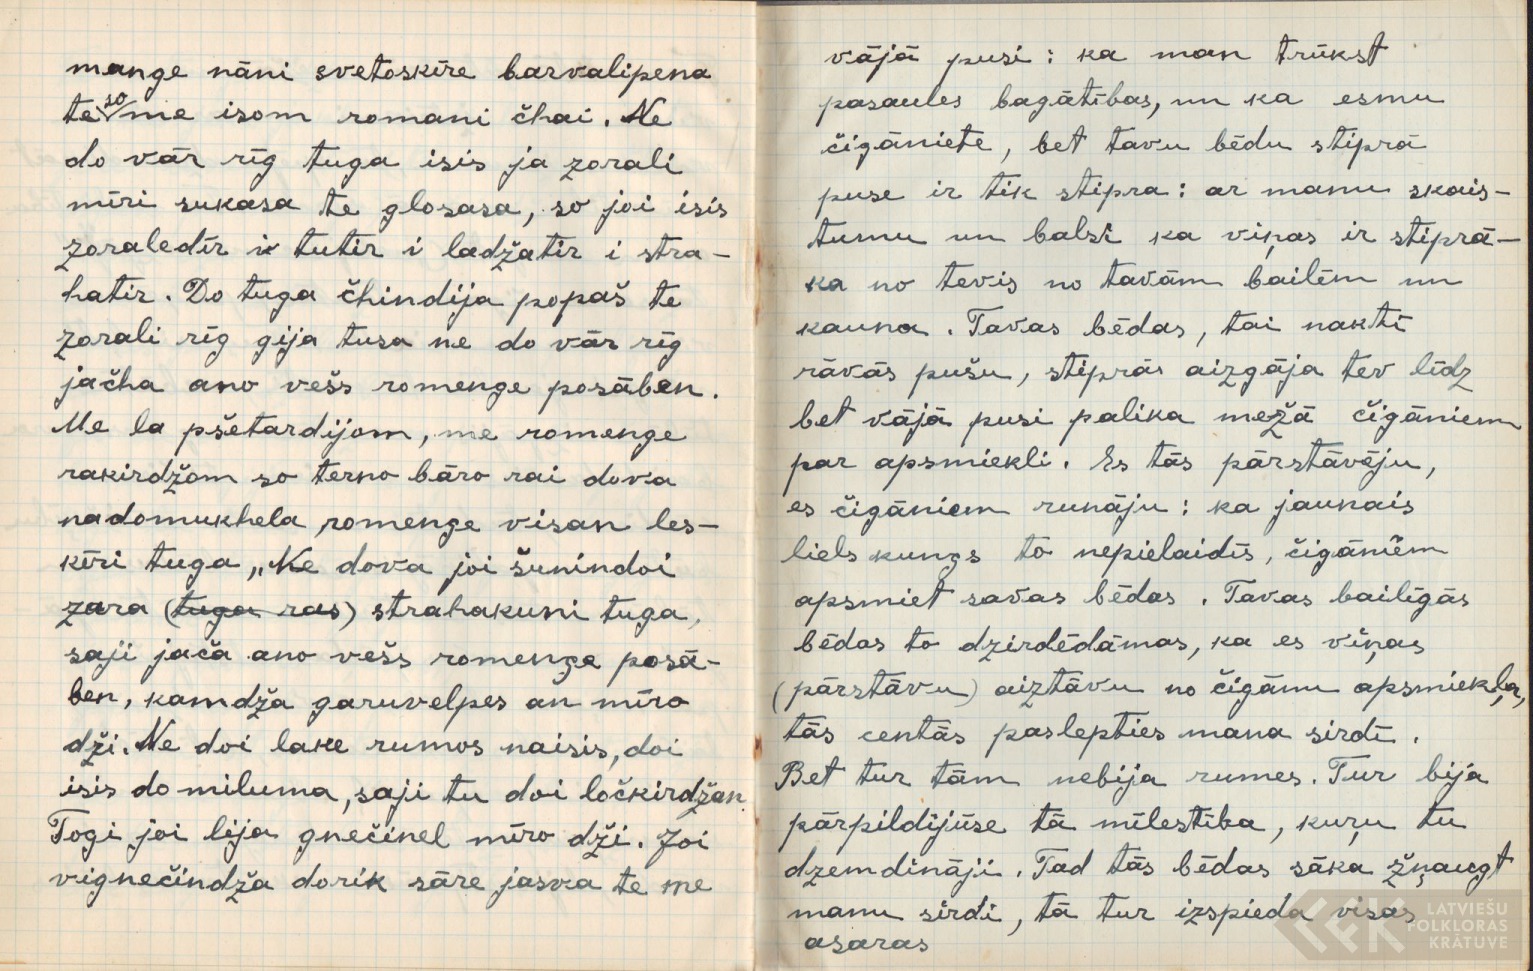 mange nāni svetoskīre barvalipena
te so me isom romani čhai. Ne
do vār rīg tuga isis ja zorali
mīri sukasa te glosasa, so joi isis
zoraledīr i tutir i ladžatir i stra-
hatir. Do tuga čhindija popaš te
zorali rīg gija tusa ne do vār rīg
jačha ano vešs romenge posāben.
Me la pšetardijom, me romenge
rakirdžom so terno bāro rai dova
nadomukhela romenge visan les-
kīri tuga „Ne dova joi šunindoi
zara (tuga ras) strahakuni tuga,
saji jača ano vešs romenge posā-
ben, kamdža garuvelpes an mīro
dži. Ne doi lake rumos naisis, doi
isis do miluma, saji tu doi ločkirdžan
Togi joi lija gnečinel mīro dži. Joi
vignečindža dorik sāre jasva te me
vājā pusi : ka man trūkst
pasaules bagātības, un ka esmu
čigāniete, bet tavu bēdu stiprā
puse ir tik stipra : ar manu skais-
tumu un balsi ka viņas ir stiprā-
ka no tevis no tavām bailēm un
kauna. Tavas bēdas, tai naktī
rāvās pušu, stiprās aizgāja tev līdz
bet vājā pusi palika mežā čigāniem
par apsmiekli. Es tās pārstāvēju,
es čigāniem runāju : ka jaunais
liels kungs to nepielaidīs, čigāniēm
apsmiet savas bēdas. Tavas bailīgās
bēdas to dzirdēdāmas, ka es viņas
(pārstāvu) aiztāvu no čigānu apsmiekļa,
tās centās paslepties mana sirdī.
Bet tur tām nebija rumes. Tur bija
pārpildījūse tā mīlestība, kuŗu tu
dzemdināji. Tad tās bēdas sāka žņaugt
manu sirdi, tā tur izspieda visas
asaras
LATVIEŠU
FOLKLORAS
KRĀTUVE